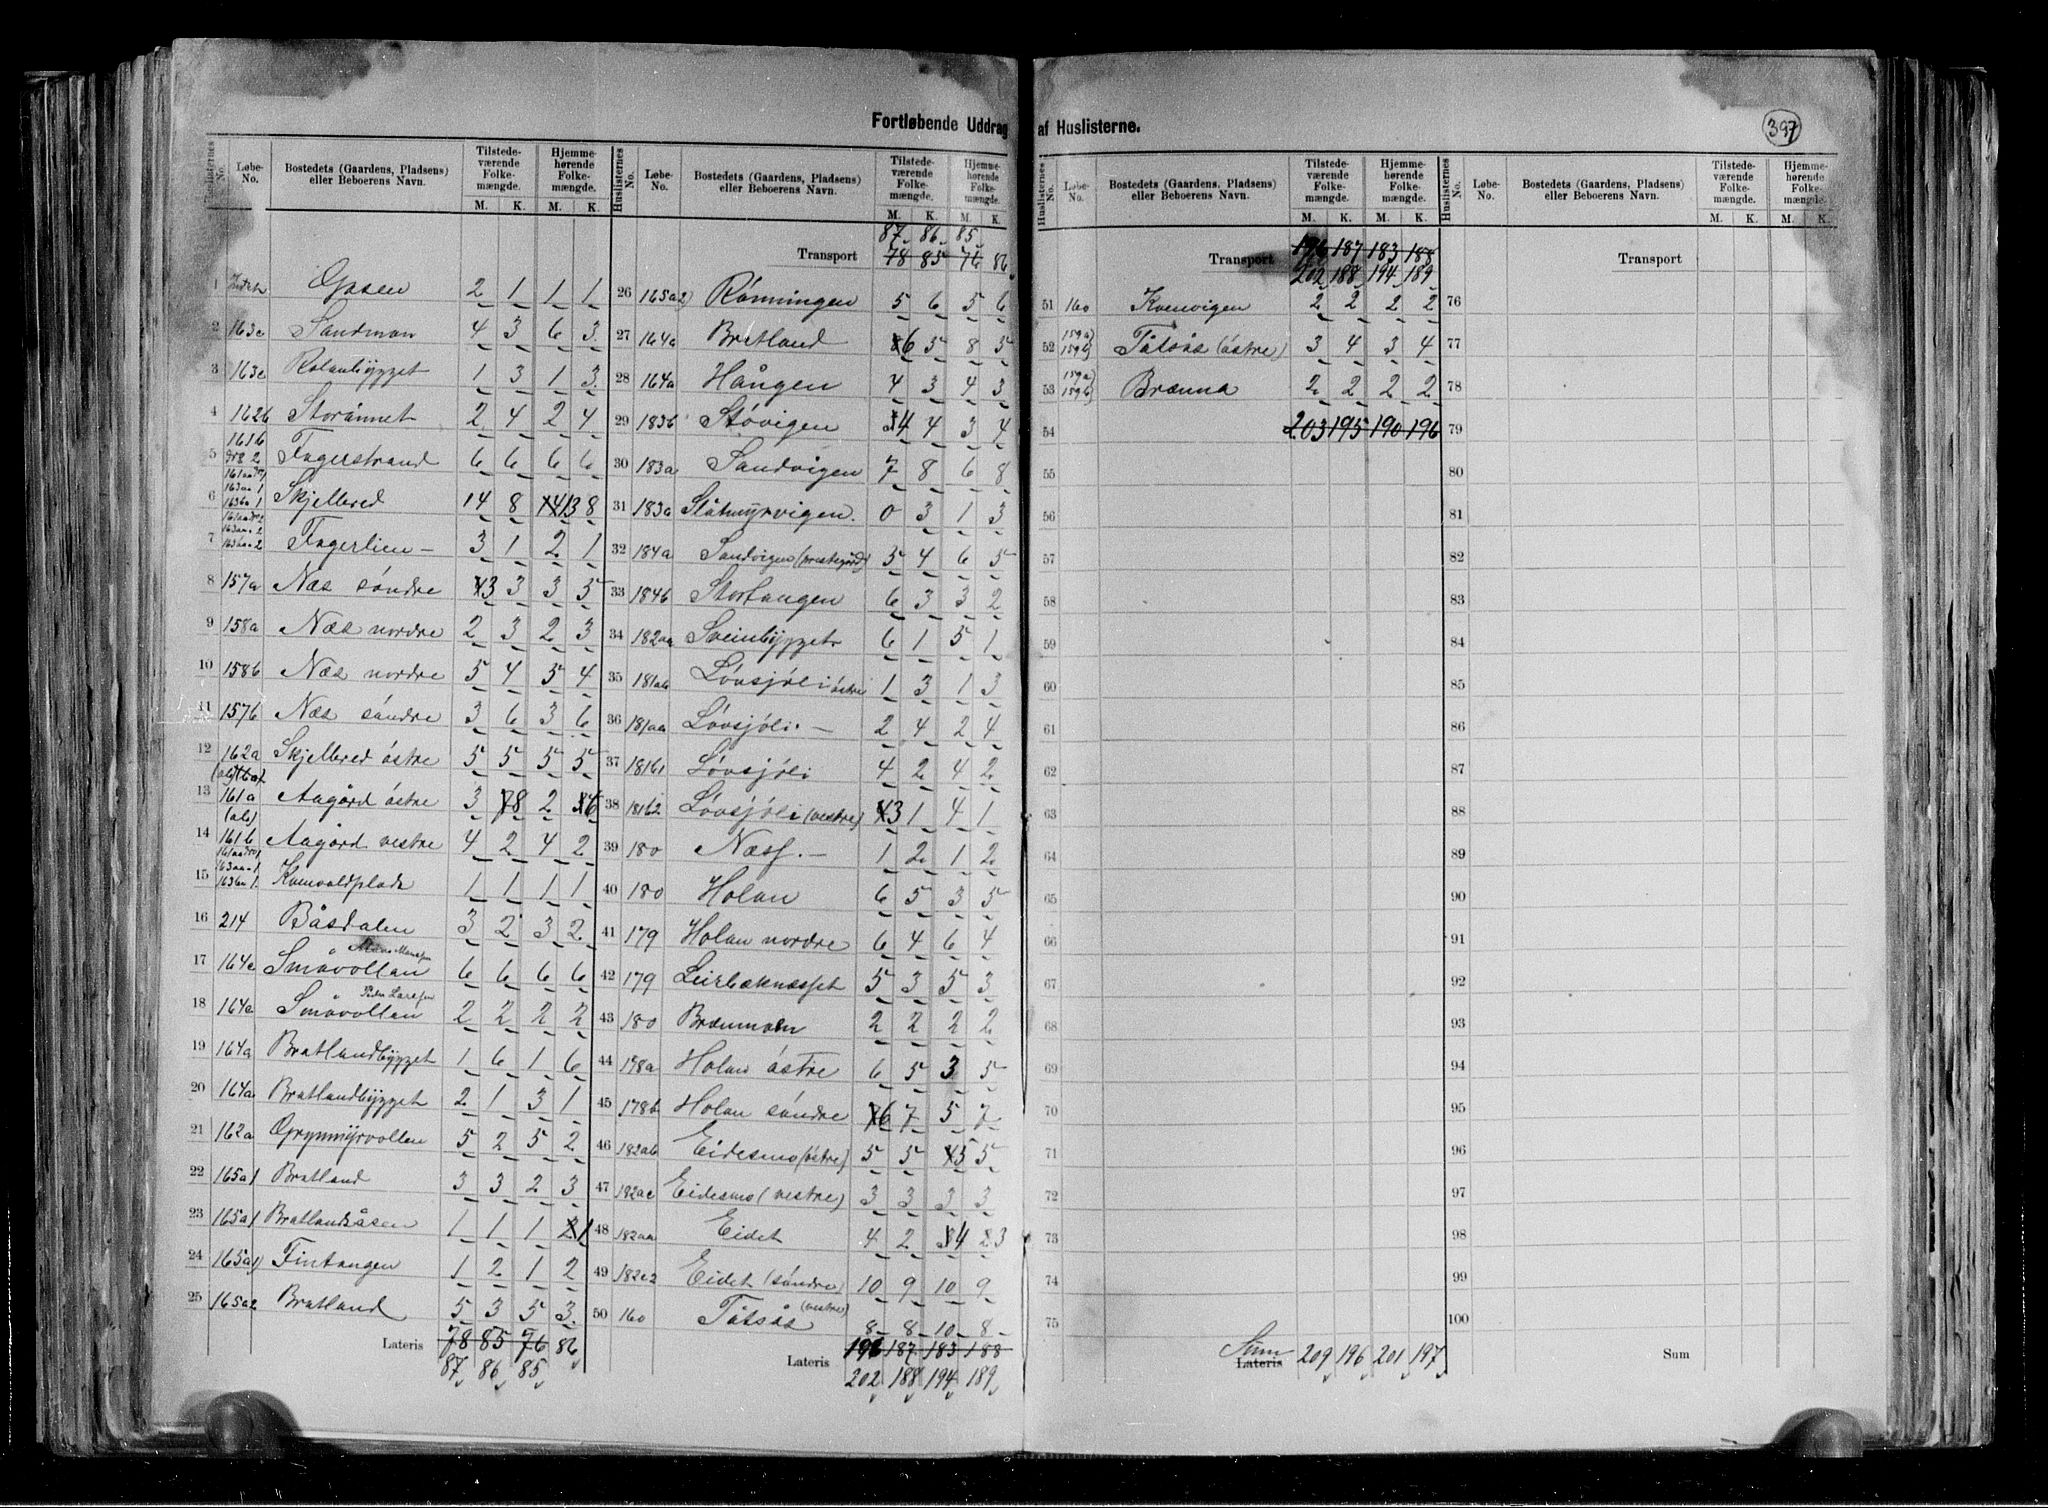 Fortløbende Uddrag af Huslisterne.
397
Huslisternes No. Løbe-No. Bostedets (Gaardens, Pladsens) eller Beboerens Navn. Tilstedeværende Folkemængde. M. K. Hjemmehørende Folkemængde. M. K.
1 Gasen 2 1 1 1
2 163c Sandmon 4 3 6 3
3 163c 1 3 1 3
4 162b Storånnet 2 4 2 4
5 161b Fagerstrand 6 6 6 6
6 Skjelbred 14 8 13 8
7 Fagerlien 3 1 2 1
8 157a Næs söndre 3 3 3 5
9 158a Næs nordre 2 3 2 3
10 158b Næs nordre 5 4 5 4
11 157b Næs söndre 3 6 3 6
12 162a Skjelbred östre 5 5 5 5
13 161a Aagård östre 3 8 2 6
14 161b Aagård vestre 4 2 4 2
15 1 1 1 1
16 214 Båsdalen 3 2 3 2
17 164c Småvollan 6 6 6 6
18 164c Småvollan Peder Larssen 2 2 2 2
19 164a Bratlandbygget 1 6 1 6
20 164a Bratlandbygget 2 1 3 1
21 162a Grynmyrvollen 5 2 5 2
22 165a1 Bratland 3 3 2 3
23 165a1 Bratlandsåsen 1 1 1 1
24 165a1 Fintangen 1 2 1 2
25 165a2 Bratland 5 3 5 3
Lateris 78 85 76 86
87 86 85
87 86 85
Transport 78 85 76 86
26 165a2 Rönningen 5 6 5 6
27 164a Bratland 6 5 8 5
28 164a Hången 4 3 4 3
29 183b Stövigen 4 4 3 4
30 183a Sandvigen 7 8 6 8
31 183a Slåtmyrvigen. 0 3 1 3
32 184a Sandvigen (prestegård) 5 4 6 5
33 184b Stortangen 6 3 3 2
34 182aa Sveinbygget 6 1 5 1
35 181ab Lövsjöli östre 1 3 1 3
36 181aa Lövsjöli. 2 4 2 4
37 181b1 Lövsjöli 4 2 4 2
38 181b2 Lövsjöli (vestre) 3 1 4 1
39 180 Næss. 1 2 1 2
40 180 Holan 6 5 3 5
41 179 Holan nordre 6 4 6 4
42 179 Leirbæknæsset 5 3 5 3
43 180 Brænmoen 2 2 2 2
44 178a Holan östre 6 5 3 5
45 178b Holan söndre 6 7 5 7
46 182ab Eidesmo (östre) 5 5 5 5
47 182ac Eidesmo (vestre) 3 3 3 3
48 182aa Eidet 4 2 4 3
49 182c2 Eidet (söndre) 10 9 10 9
50 160 Tåtsås (vestre) 8 8 10 8
Lateris 196 187 183 188
202 188 194 189
Huslisternes No. Løbe-No. Bostedets (Gaardens, Pladsens) eller Beboerens Navn. Tilstedeværende Folkemængde. M. K. Hjemmehørende Folkemængde. M. K.
Transport 196 187 183 188
202 188 194 189
51 160 Kvenvigen 2 2 2 2
52 159a) 159b) Tåtsås (östre) 3 4 3 4
53 159a) 159b) Brænna 2 2 2 2
54 203 195 190 196
55
56
57
58
59
60
61
62
63
64
65
66
67
68
69
70
71
72
73
74
75
Sum Lateris 209 196 201 197
Transport
76
77
78
79
80
81
82
83
84
85
86
87
88
89
90
91
92
93
94
95
96
97
98
99
100
Sum